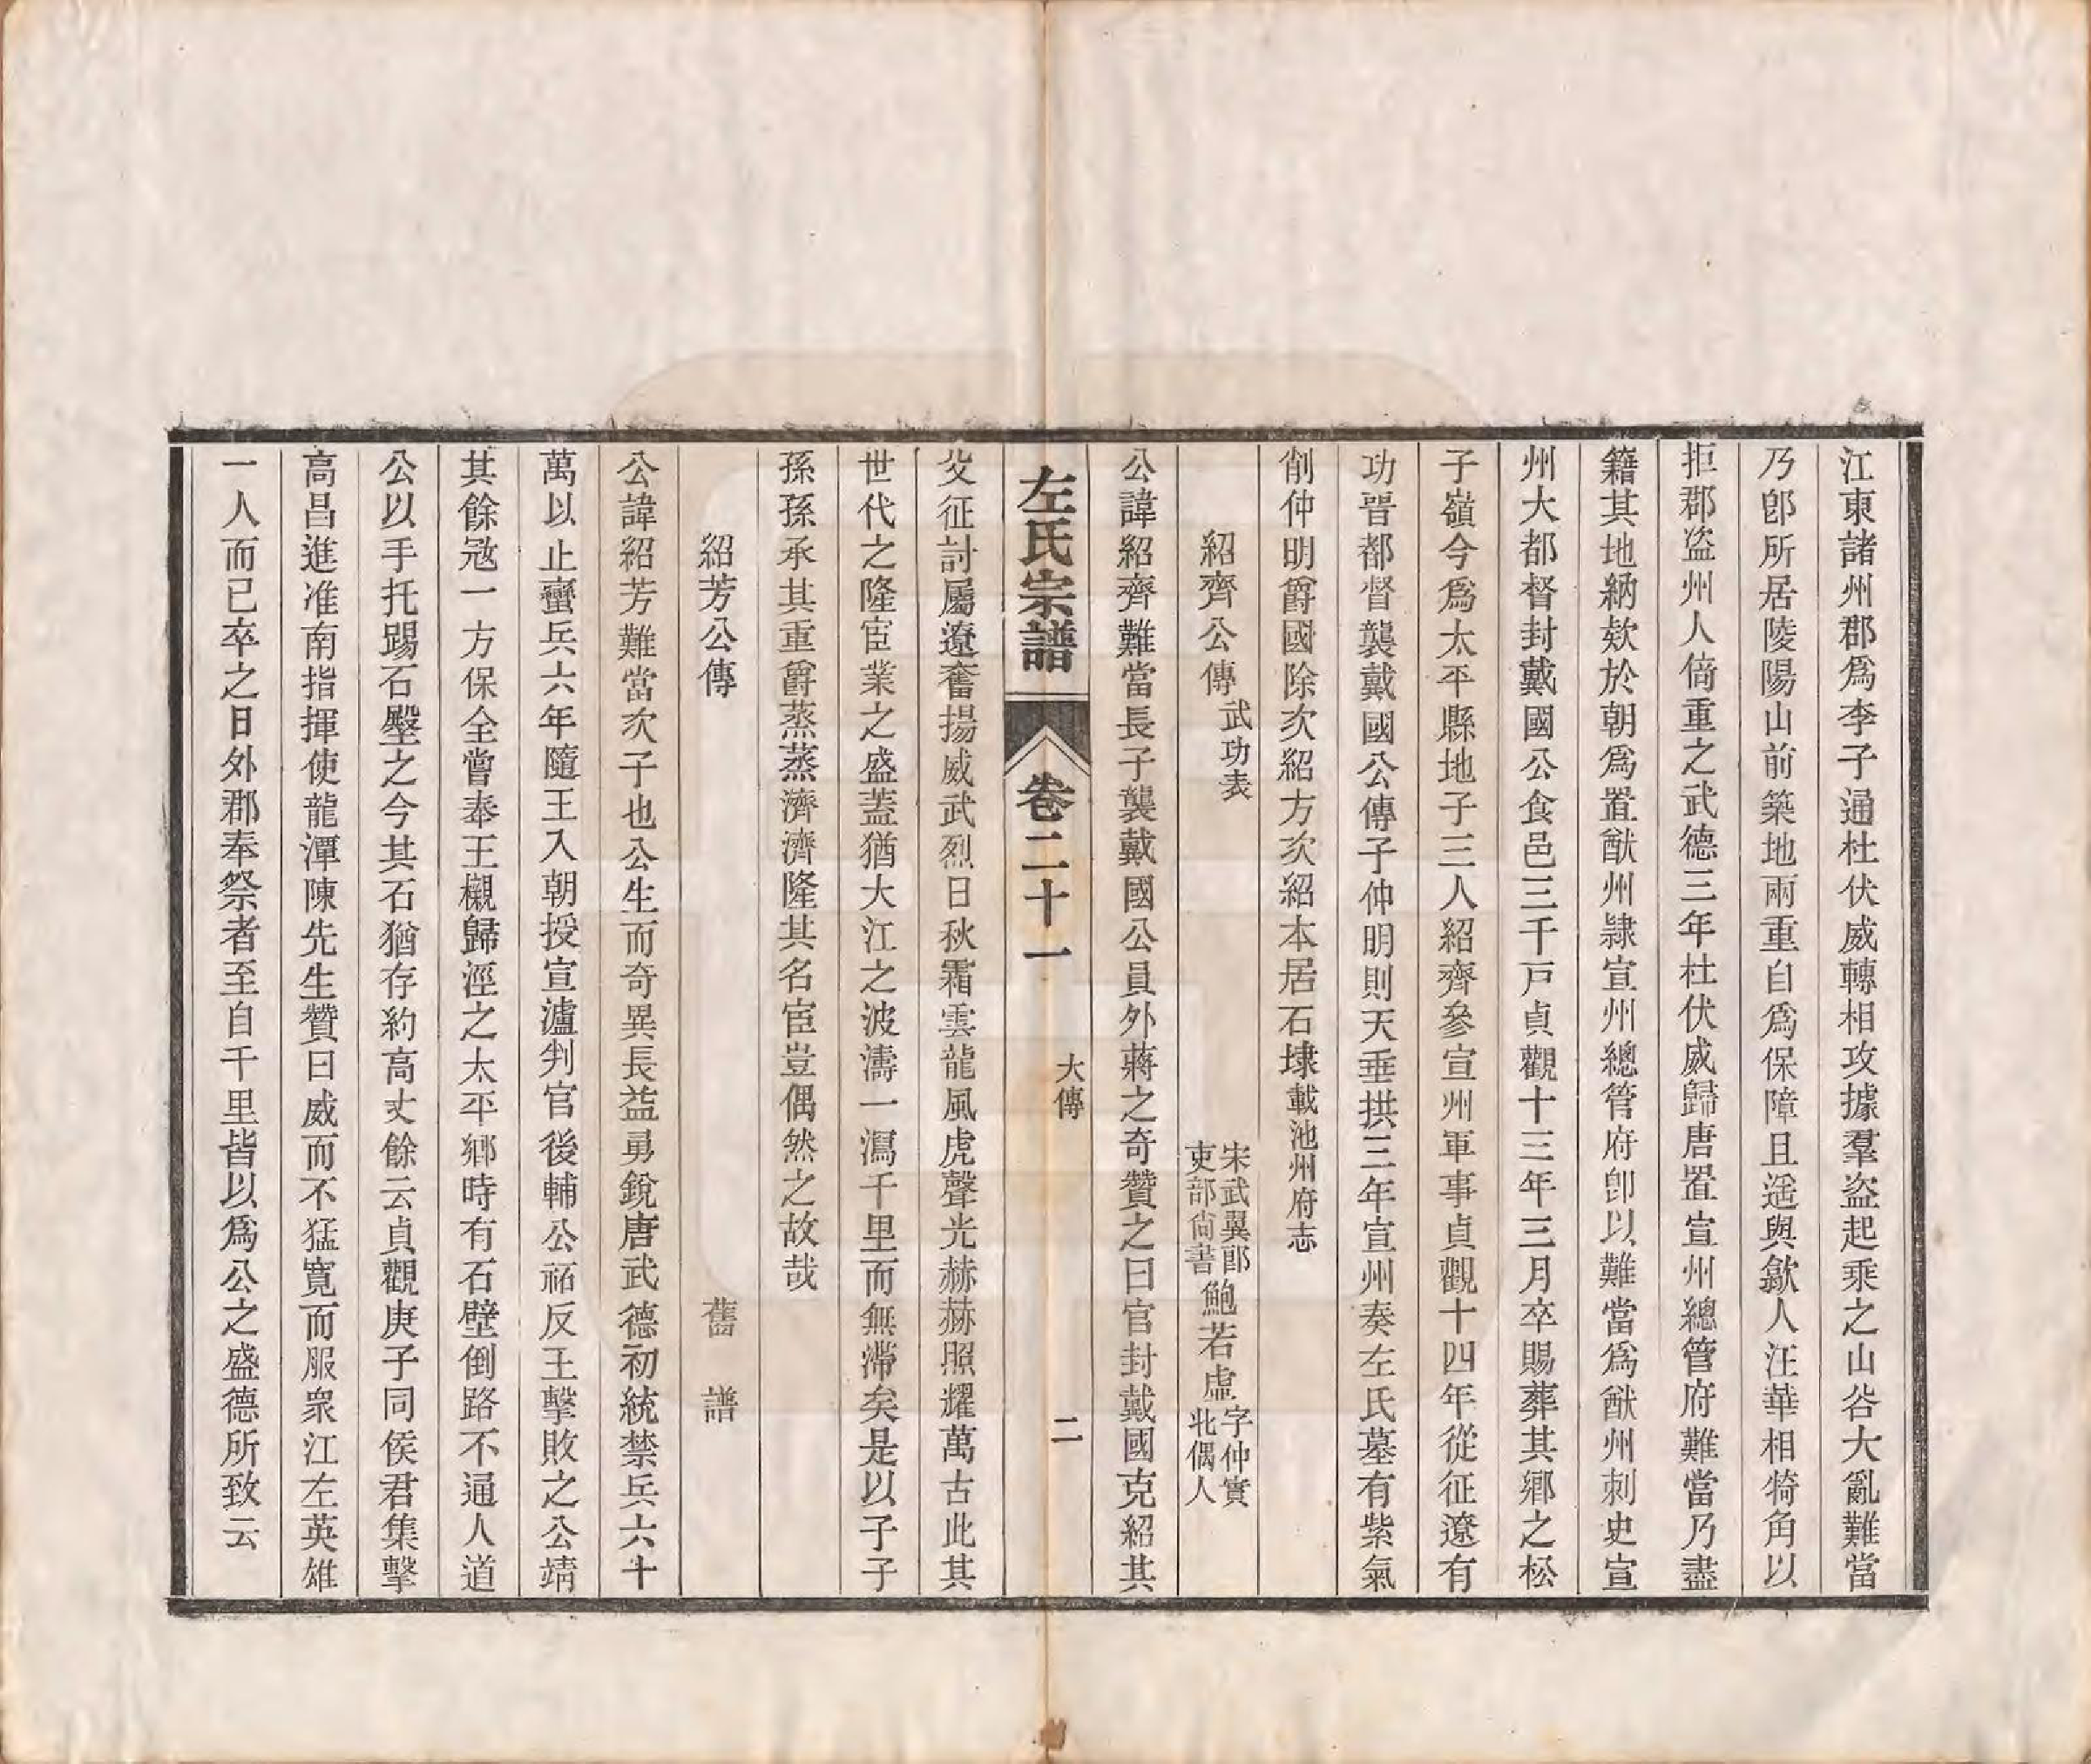 江東諸州郡爲李子通杜伏威轉相攻據羣盜起乘之山谷大亂難當
乃卽所居陵陽山前築地兩重自爲保障且遥與歙人汪華相犄角以
拒郡盜州人倚重之武德三年杜伏威歸唐置宣州總管府難當乃盡
籍其地納欵於朝爲置猷州隸宣州總管府卽以難當爲猷州刺史宣
州大都督封戴國公食邑三千戸貞觀十三年三月卒賜葬其鄉之松
子嶺今爲太平縣地子三人紹齊參宣州軍事貞觀十四年從征遼有
功晋都督襲戴國公傳子仲明則天垂拱三年宣州奏左氏墓有紫氣
削仲明爵國除次紹方次紹本居石埭載池州府志
紹齊公傳武功表 宋武翼郎吏部尙書鮑若虛字仲實北偶人
公諱紹齊難當長子襲戴國公員外蔣之奇贊之曰官封戴國克紹其
左氏宗譜 卷二十一 大傳 二
父征討屬遼奮揚威武烈日秋霜雲龍風虎聲光赫赫照耀萬古此其
世代之隆宦業之盛蓋猶大江之波濤一瀉千里而無滯矣是以子子
孫孫承其重爵蒸蒸濟濟隆其名宦豈偶然之故哉
紹芳公傳 舊譜
公諱紹芳難當次子也公生而奇異長益勇銳唐武德初統禁兵六十
萬以止蠻兵六年隨王入朝授宣瀘判官後輔公祏反王擊敗之公靖
其餘冦一方保全嘗奉王櫬歸涇之太平鄉時有石壁倒路不通人道
公以手托踢石壂之今其石猶存約高丈餘云貞觀庚子同侯君集擊
高昌進淮南指揮使龍潭陳先生贊曰威而不猛寬而服衆江左英雄
一人而已卒之日外郡奉祭者至自千里皆以爲公之盛德所致云